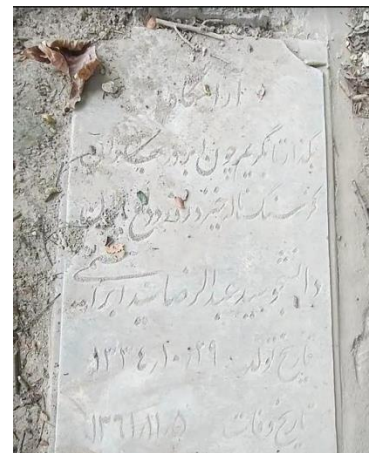 آرامگاه
بگذار تا بگریم چون ابر در بهاران
کز سنگ ناله خیزد روز وداع یاران
دانشجو سید عبدالرضا سید ابراهیمی
تاریخ تولد ۱۳۳٤٫۱۰٫۲۹
تاریخ وفات ۱۳٦۱٫۱۱٫۵